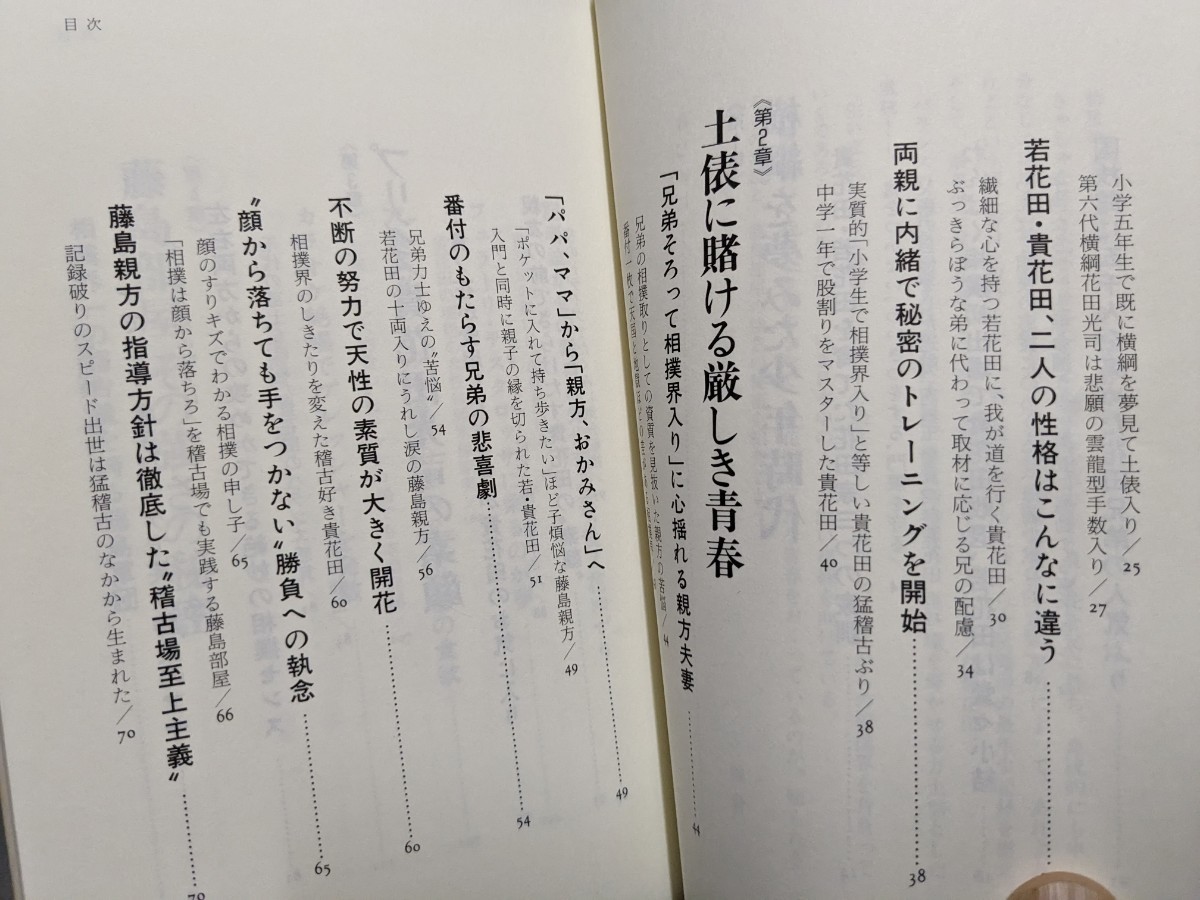 小学五年生で既に横綱を夢見て土俵入り/25
第六代横綱花田光司は悲願の雲龍型手数入り/27
若花田・貴花田、二人の性格はこんなに違う
繊細な心を持つ若花田に、我が道を行く貴花田/30
ぶっきらぼうな弟に代わって取材に応じる兄の配慮/34
両親に内緒で秘密のトレーニングを開始 38
実質的「小学生で相撲界入り」と等しい貴花田の猛稽古ぶり/38
中学一年で股割りをマスターした貴花田/40
《第2章》
土俵に賭ける厳しき青春
「兄弟そろって相撲界入り」に心揺れる親方夫妻 44
兄弟の相撲取りとしての資質を見抜いた親方の苦悩/44
目次
「パパ、ママ」から「親方、おかみさん」へ 49
「ポケットに入れて持ち歩きたい」ほど子煩悩な藤島親方/49
入門と同時に親子の縁を切られた若・貴花田/51
番付のもたらす兄弟の悲喜劇 54
兄弟力士ゆえの〝苦悩〟/54
若花田の十両入りにうれし涙の藤島親方/56
不断の努力で天性の素質が大きく開花 60
相撲界のしきたりを変えた稽古好き貴花田/60
〝顔から落ちても手をつかない〟勝負への執念 65
顔のすりキズでわかる相撲の申し子/65
「相撲は顔から落ちろ」を稽古場でも実践する藤島部屋/66
藤島親方の指導方針は徹底した〝稽古場至上主義〟 70
記録破りのスピード出世は猛稽古のなかから生まれた/70